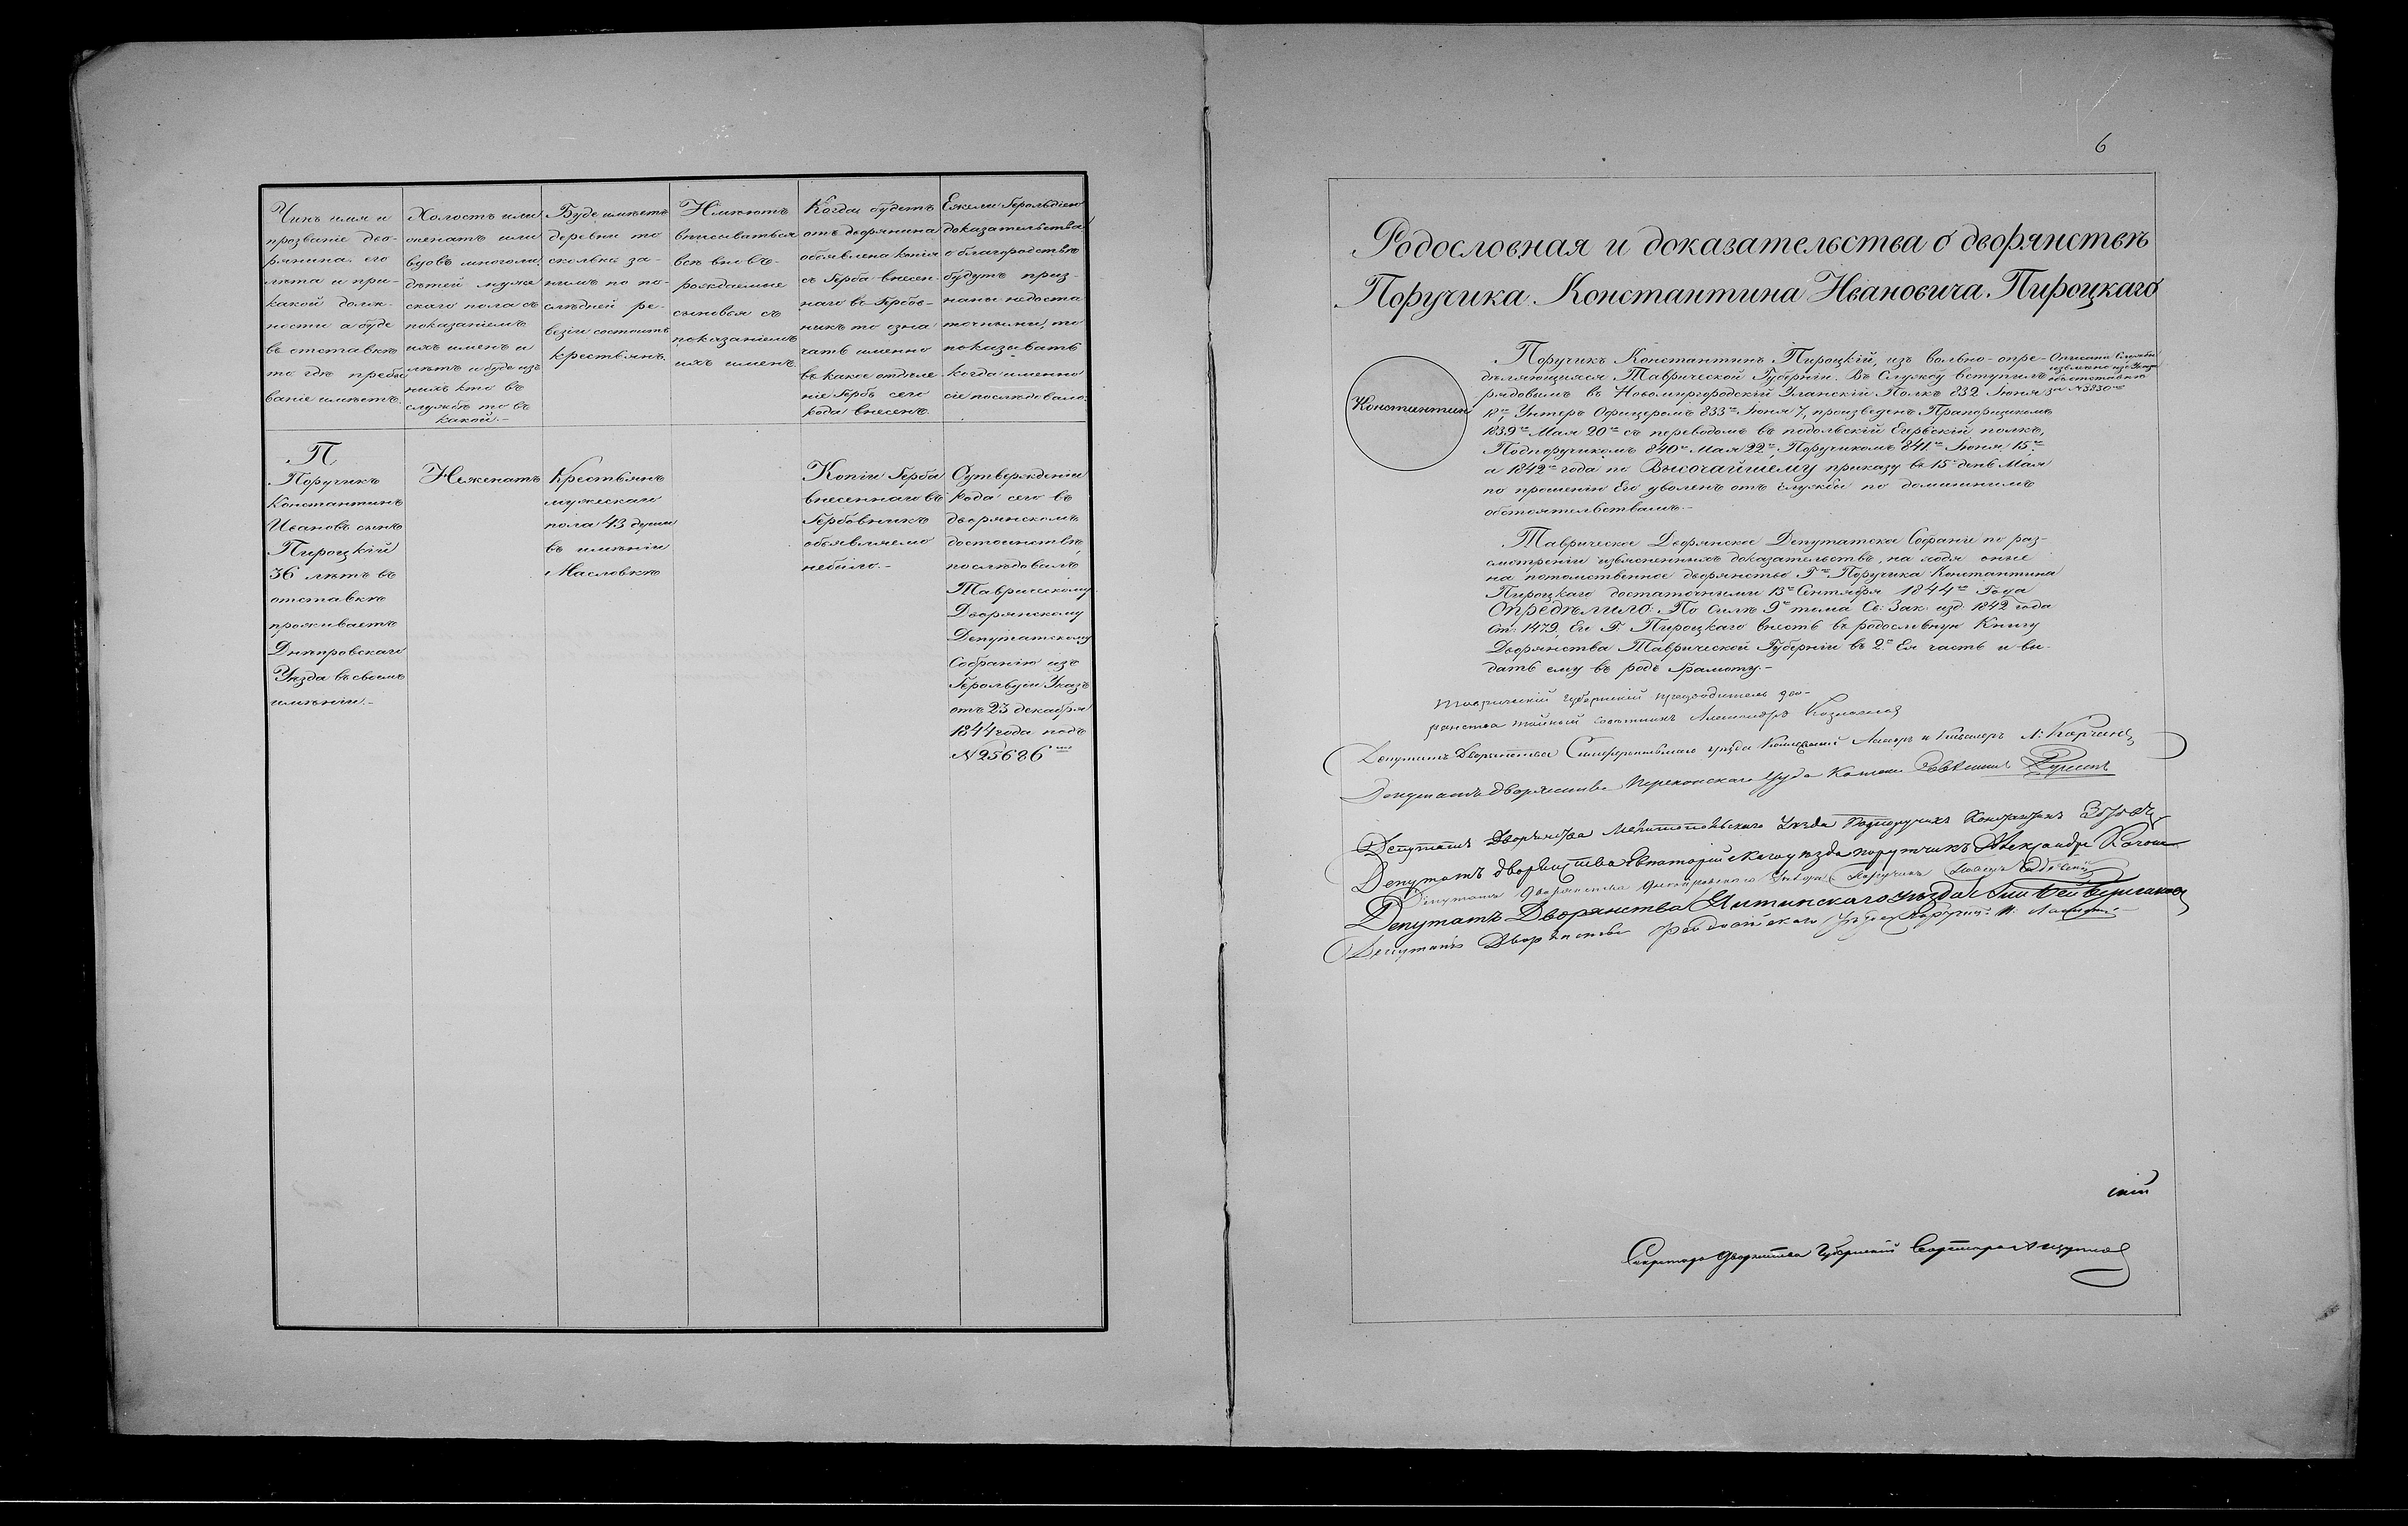 Чинъ имя и
прозваніе дво-
рянина. его
лѣта и при-
какой долж-
ности а буде
въ отставкѣ
то гдѣ пребы
ваніе имѣетъ.
Холостъ или
женатъ или
вдовъ многоли
дѣтей муже
скаго пола съ
показаніемъ
ихъ именъ и
лѣтъ и буде изъ
нихъ кто въ
службѣ то въ
какой.-
Буде имѣетъ
деревни то
сколько за-
нимъ по по-
слѣдней ре-
визіи состоитъ
крестьянъ.
Имѣютъ
вписываться
всѣ вновь-
рождаемые
сыновья съ
показаніемъ
ихъ именъ.
Когда будетъ
отъ дворянина
объявлена копія
съ Герба внесен-
наго въ Гербов-
никъ то озна
чать именно
въ какое отдѣле
ніе Гербъ сего
рода внесенъ.
Ежели Герольдіею
доказательства
о благородствѣ
будутъ приз-
наны недоста
точными, то
показывать
когда именно
сіе послѣдовало.
П
Поручикъ
Константинъ
Ивановъ сынъ
Пироцкій
36 лѣтъ въ
отставкѣ
проживаетъ
Днѣпровскаго
Уѣзда въ своемъ
имѣніи.-
Неженатъ
Крестьянъ
мужескаго
пола 43 души
въ имѣніи
Масловкѣ
Копіи Герба
внесеннаго въ
Гербовникъ
объявляемо
небыло.-
Оутвержденіи
Рода сего въ
дворянскомъ
достоинствѣ,
послѣдовалъ
Таврическому
Дворянскому
Депутатскому
Собранію изъ
Герольдіи Указъ
отъ 23 декабря
1844 года подъ
№ 25686 мъ
6
Родословная и доказательства о дворянствѣ
Поручика Константина Ивановича Пироцкаго
Константинъ
Поручикъ Константинъ Пироцкій, изъ вольно-опре-
дѣляющихся Таврической Губерніи. Въ Службу вступилъ
рядовымъ въ Новомиргородскій Уланскій Полкъ 832 Іюня
18го, Унтеръ Офицеромъ 833го Іюня 7, произведенъ Прапорщикомъ
1839го Мая 20го съ переводомъ въ подольскій Егерскій полкъ,
Подпоручикомъ 840го Мая 22го, Поручикомъ 841го Іюня 15го
а 1842го года по Высочайшему приказу въ 15й день Мая
по прошенію Его уволенъ отъ службы по домашнимъ
обстоятельствамъ.-
Описаніи Службы
извлечено изъ Указа
объ отставкѣ
за № 3830мъ
Таврическое Дворянское Депутатское Собраніе по раз-
смотреніи изъясненныхъ доказательствъ, на ходя оные
на потомственное дворянство Гна Поручика Константина
Пироцкаго достаточными 13го Сентября 1844го Года
Опредѣлило: По силѣ 9го тома Св: Зак: изд: 1842 года
Ст: 1479, Ея Г. Пироцкаго внесть въ родословную Книгу
Дворянства Таврической Губерніи въ 2ю Ея часть и вы-
дать ему въ родъ Грамоту.-
Таврическій Губернскій предводитель дво-
рянства тайный советникъ Александръ Казначеев
Депутатъ Дворянства Симферопольскаго уѣзда Коллежскій Асессоръ и Кавалеръ
Депутатъ дворянства Перекопскаго уѣзда
Депутатъ Дворянства Мелитопольскаго Уѣзда Подпоручикъ Константинъ
Депутатъ дворянства Евпаторійскаго уѣзда поручикъ Александръ
Депутатъ Дворянства Днепровскаго Уѣзда Поручикъ
Депутатъ Дворянства Ялтинскаго уѣзда
Депутатъ Дворянства Феодосійскаго Уѣзда Поручикъ
скій
Секретарь дворянства Губернскій Секретарь